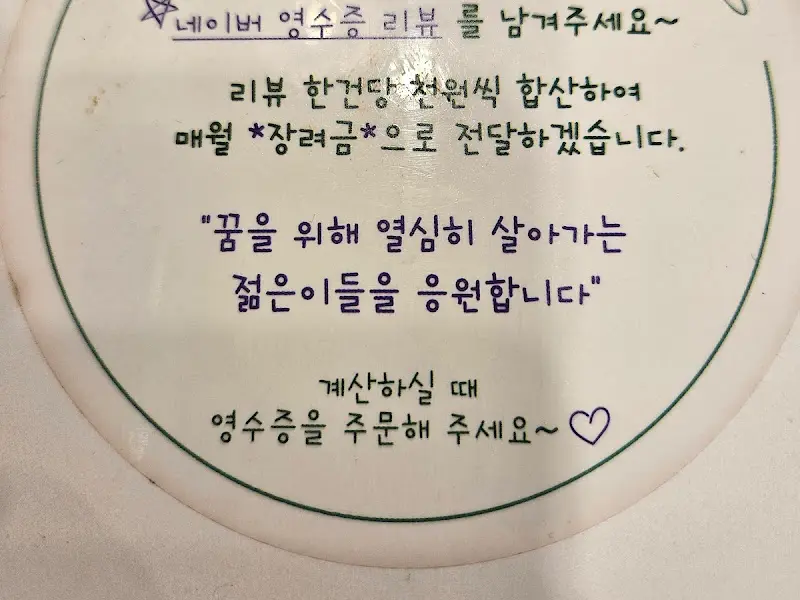 네이버 영수증 리뷰 를 남겨주세요~
리뷰 한건당 천원씩 합산하여
매월 *장려금*으로 전달하겠습니다.
"꿈을 위해 열심히 살아가는
젊은이들을 응원합니다"
계산하실 때
영수증을 주문해 주세요~♡